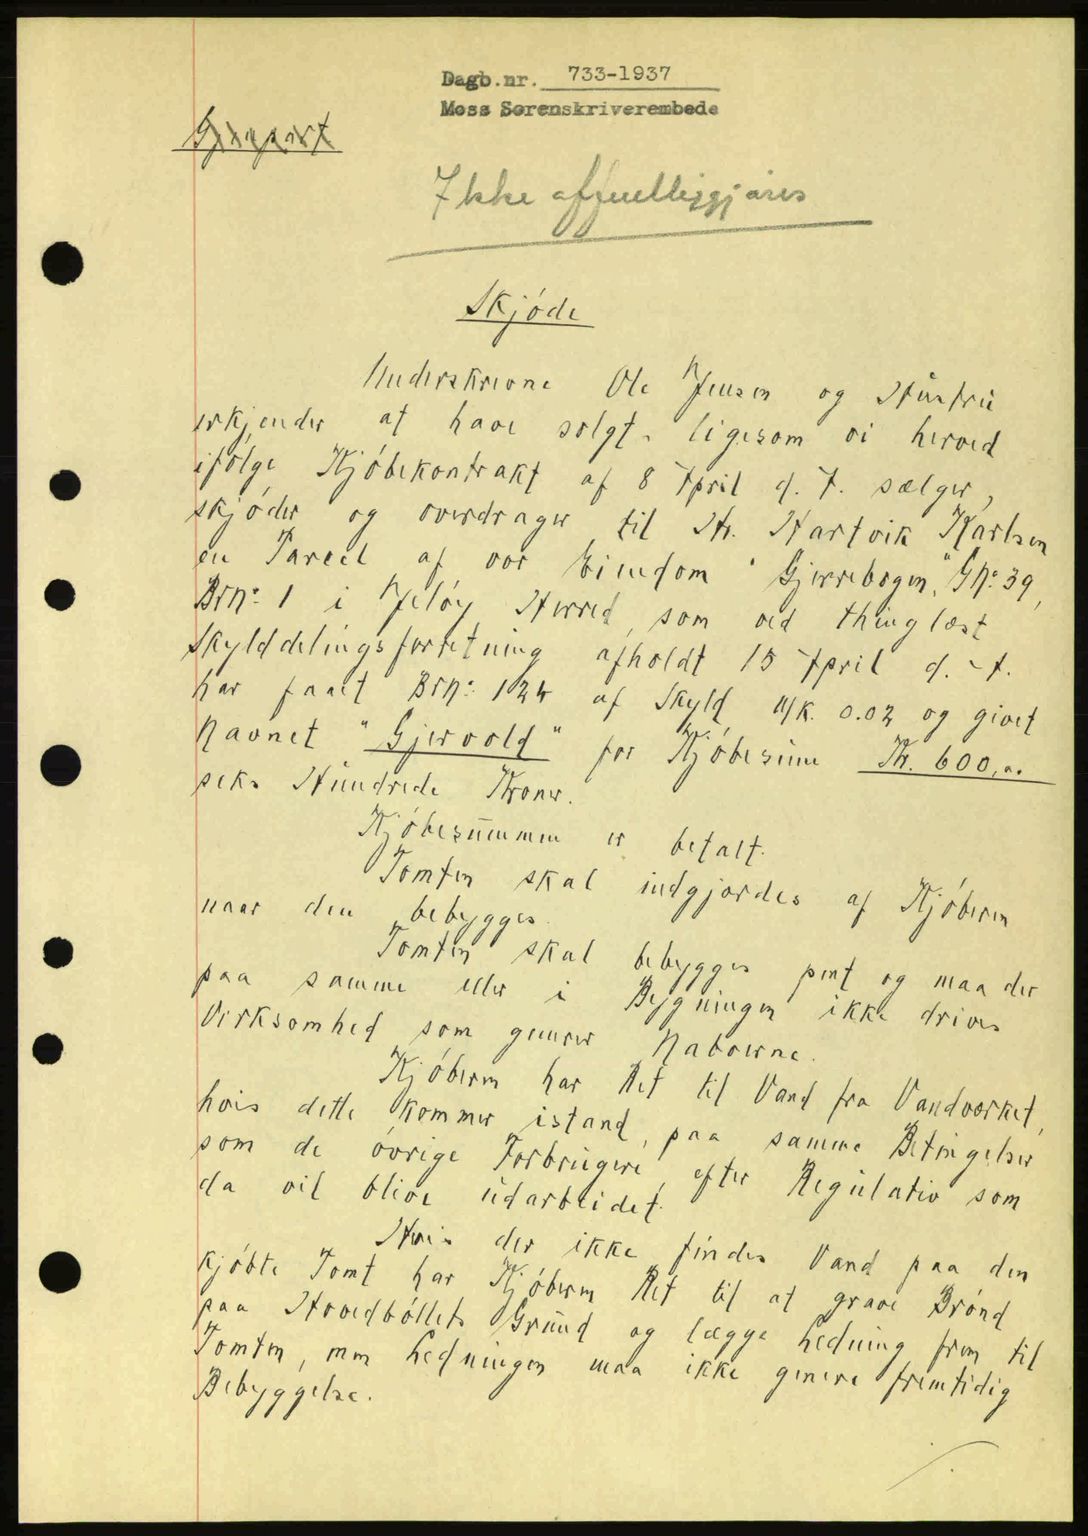 Dagb.nr. 733-1937
Moss Sorenskriverembede
Gjenpart
Ikke offentliggjøres
Skjöde
Underskrevne Ole Jensen og Hustru
erkjender at have solgt ligesom vi herved
ifölge Kjöbekontrakt af 8 April d. A. sælger,
skjöder og overdrager til Hr. Hartvik Karlsen
en Parcel af vor Eiendom "Gjerrebogen," GNo: 39,
BrNo: 1 i Jelöy Herred, som ved thinglæst
Skylddelingsforretning afholdt 15 April d. A.
har faaet BrNo: 124 af Skyld M/K. 0.02 og givet
Navnet "Gjervold" for Kjöbesum Kr. 600,00
seks Hundrede Kroner.
Kjöbesummen er betalt.
Tomten skal indgjerdes af Kjöberen
naar den bebygges.
Tomten skal bebygges pent og maa der
paa samme eller i Bygningen ikke drives
Virksomhed som generer Naboerne.
Kjöberen har Ret til Vand fra Vandværket,
hvis dette kommer istand, paa samme Betingelser
som de övrige Forbrugere, efter Regulativ som
da vil blive udarbeidet.
Hvis der ikke findes Vand paa den
kjöbte Tomt har Kjöberen Ret til at grave Brönd
paa Hovedböllets Grund og lægge Ledning frem til
Tomten, men Ledningen maa ikke genere fremtidig
Bebyggelse.